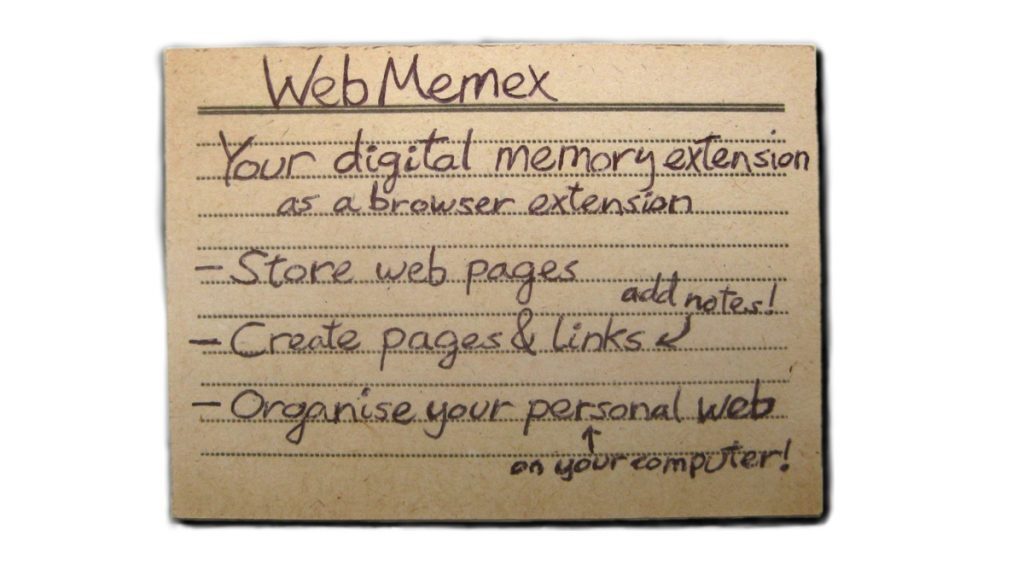 WebMemex
Your digital memory extension
as a browser extension
- Store web pages
add notes!
- Create pages & links
- Organise your personal web
on your computer!